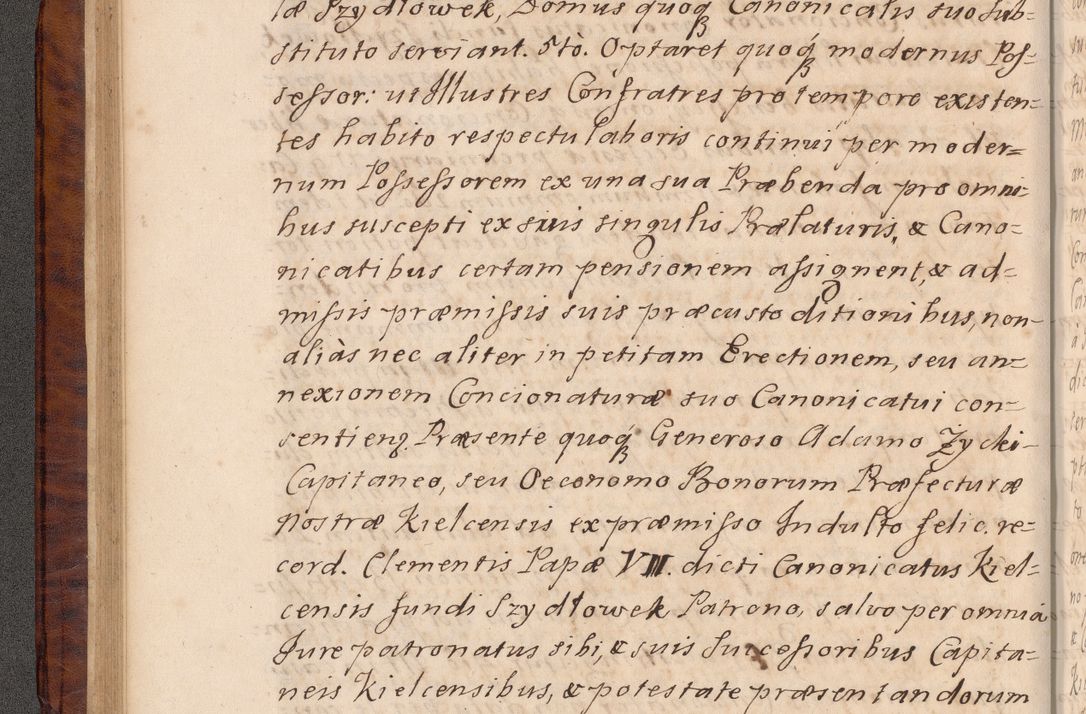 læ Szydłowek, Domus quoq́ Canonicalis suo sub-
stituto serviant. 5tò. Optaret quoq́ modernus Pos=
sessor: ut Illustres Confratres pro tempore existen=
tes habito respectu laboris continui per moder=
num Possessorem ex una sua Præbenda pro omni-
bus suscepti ex suis singulis Prælaturis, & Cano=
nicatibus certam pensionem assignent, & ad=
missis præmissis suis præcustoditionibus, non
aliàs nec aliter in petitam Erectionem, seu an=
nexionem Concionaturæ suo Canonicatui con=
sentienq. Præsente quoq́ Generoso Adamo Zycki-
Capitaneo, seu Oeconomo Bonorum Præfecturæ
nostræ Kielcensis ex præmisso Indulto felic. re=
cord. Clementis Papæ VIII. dicti Canonicatus Kiel=
censis fundi Szydłowek Patrono, salvo per omnia
Jure patronatus sibi, & suis Successoribus Capita=
neis Kielcensibus, & potestate præsentandorum